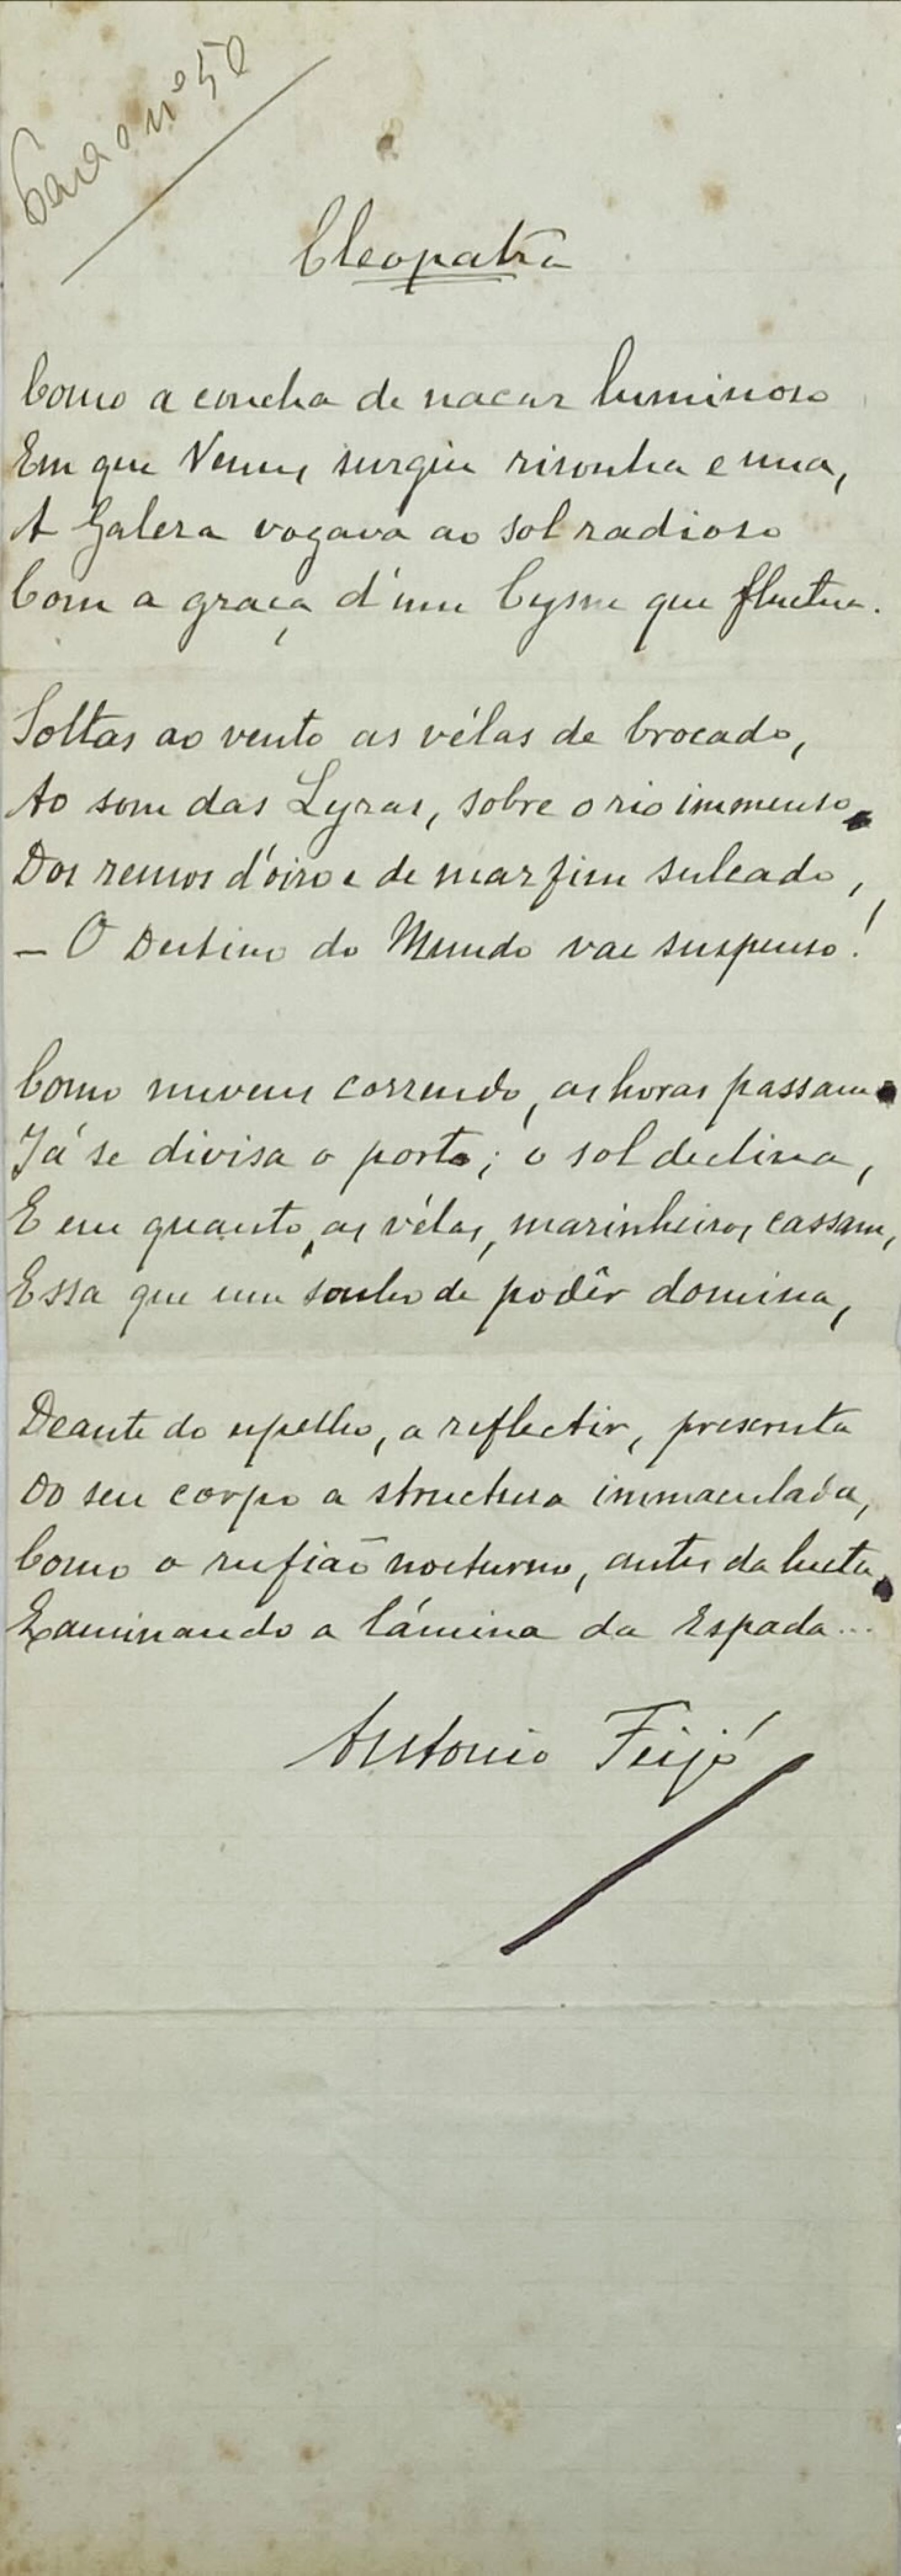 Para o nº 50
Cleopatra
Como a concha de nacar luminoso
Em que Venus surgiu risonha e nua,
A Galera vogava ao sol radioso
Com a graça d'um Cysne que fluctua.
Soltas ao vento as vélas de brocado,
Ao som das Lyras, sobre o rio immenso
Dos remos d'oiro e de marfim sulcado,
– O Destino do Mundo vae suspenso!
Como nuvens correndo, as horas passam
Já se divisa o porto; o sol declina,
E em quanto, as vélas, marinheiros cassam,
Essa que um sonho de podêr domina,
Deante do espelho, a reflectir, prescruta
Do seu corpo a structura immaculada,
Como o rufião nocturno, antes da lucta
Examinando a lámina da Espada...
Antonio Feijó